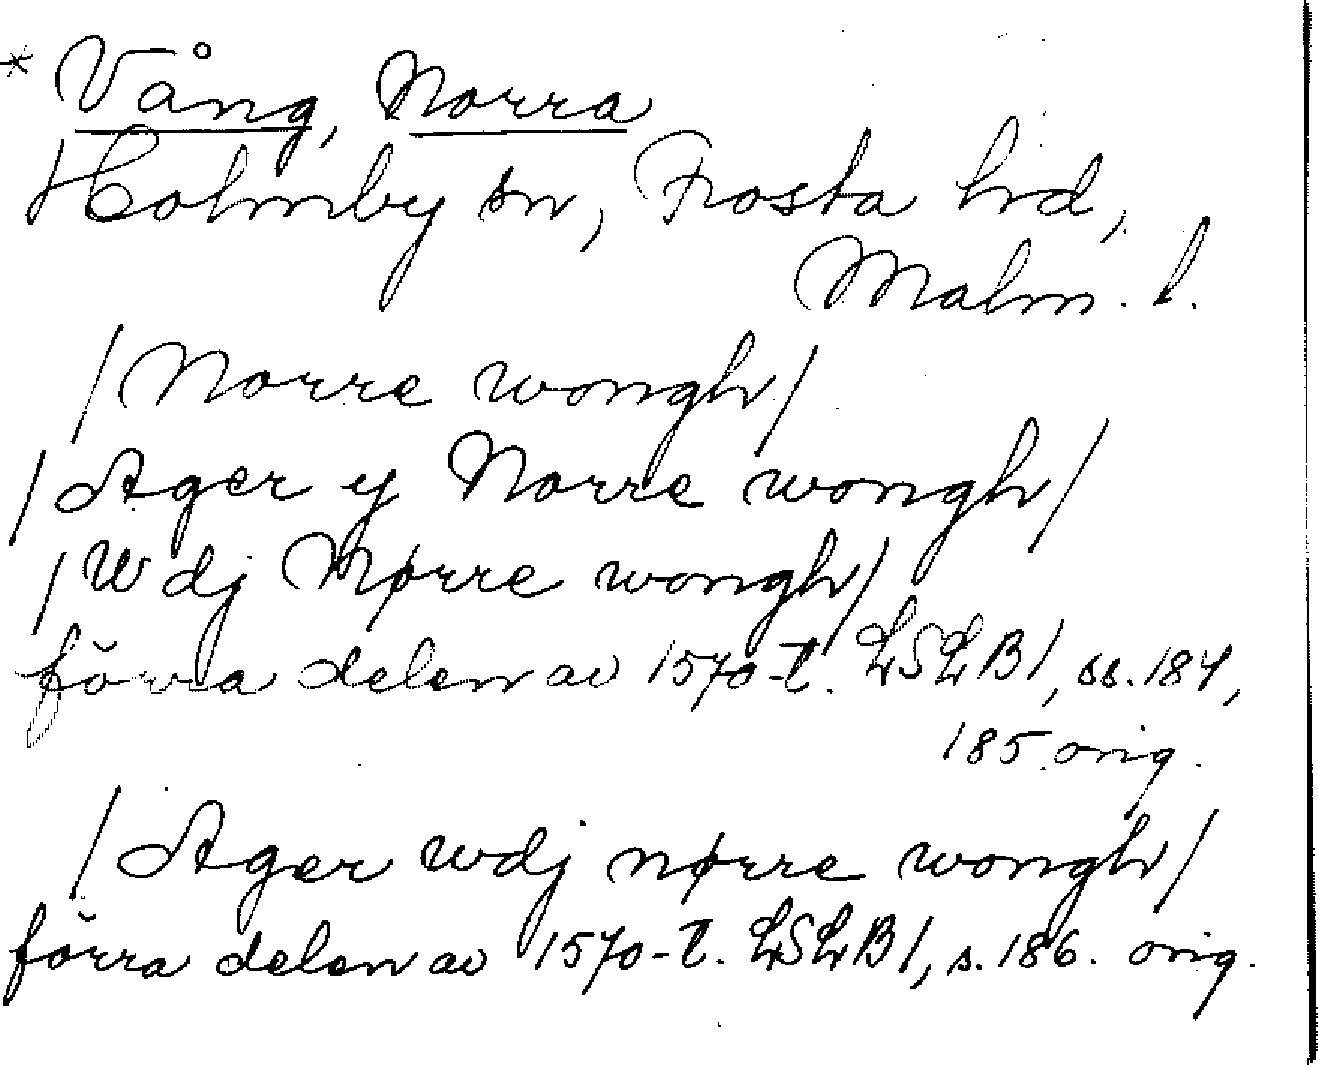 * Vång, Norra
Holmby sn, Frosta hd,
Malm. l.
/Norre wongh/
/Ager y Norre wongh/
/Wdj Nørre wongh/
förra delen av 1570-t. LSLB1, ss. 184,
185. orig.
/Ager wdj nørre wongh/
förra delen av 1570-t. LSLB1, s. 186. orig.